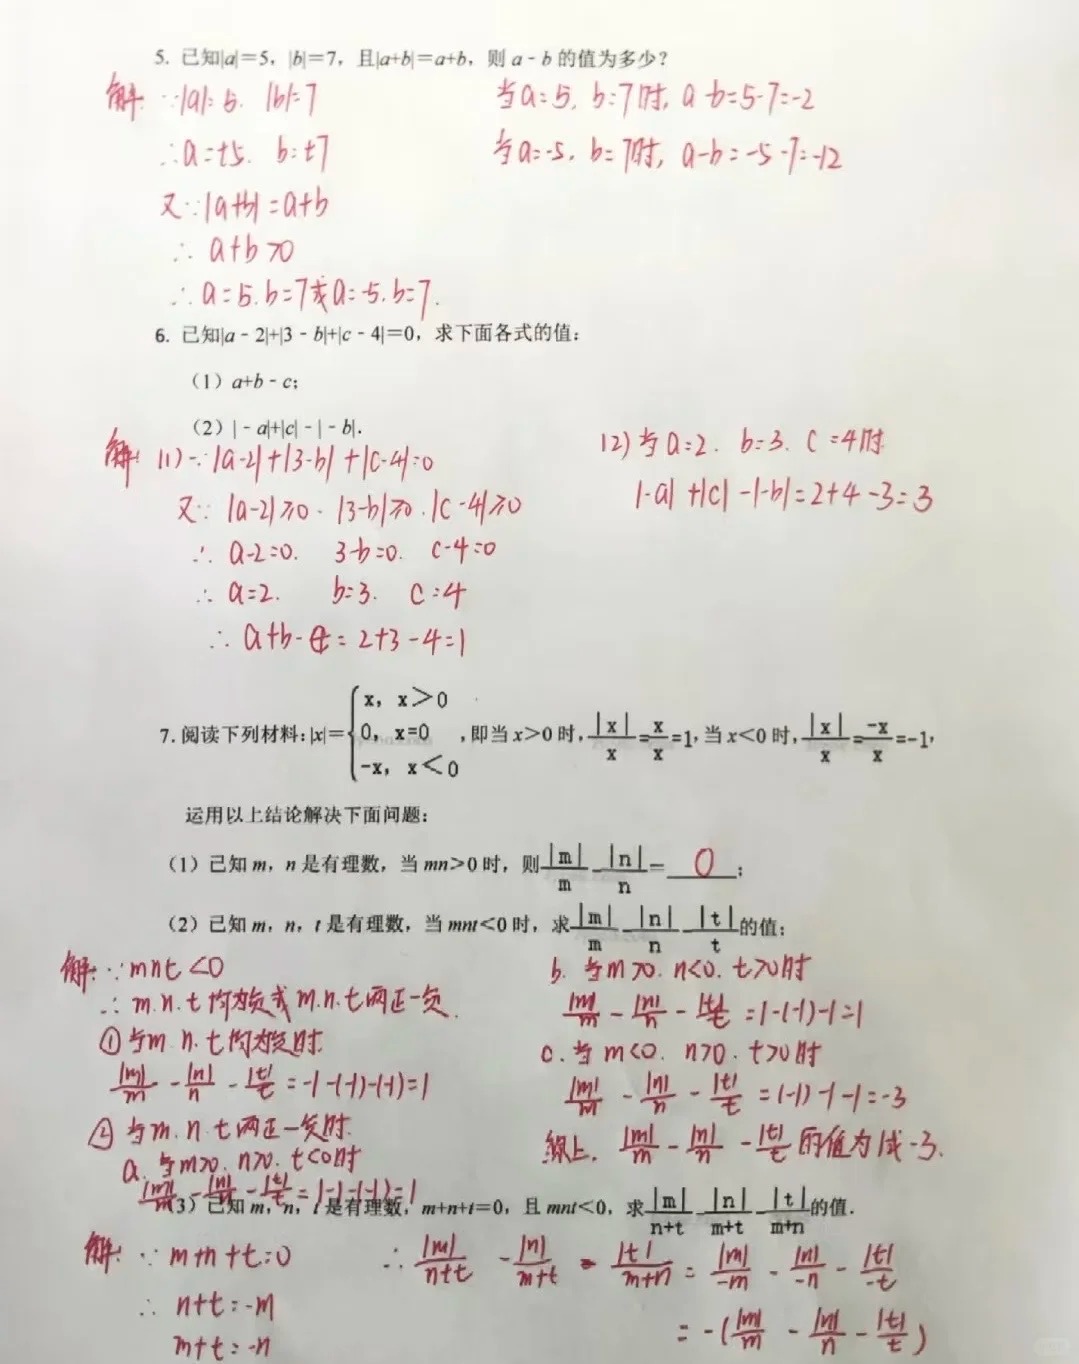 5. 已知|a|=5，|b|=7，且|a+b|=a+b，则 a-b 的值为多少？
解: ∵|a|=5. |b|=7
∴a=±5. b=±7
又∵|a+b|=a+b
∴ a+b>0
∴a=5.b=7或a=-5.b=7.
当a=5, b=7时, a-b=5-7=-2
当a=-5, b=7时, a-b=-5-7=-12
6. 已知|a-2|+|3-b|+|c-4|=0，求下面各式的值：
（1）a+b-c；
（2）|-a|+|c|-|-b|.
解: (1)∵|a-2|+|3-b|+|c-4|=0
又∵ |a-2|≥0. |3-b|≥0. |c-4|≥0
∴ a-2=0. 3-b=0. c-4=0
∴ a=2. b=3. c=4
∴ a+b-c=2+3-4=1
(2)当a=2. b=3. c=4时
|-a|+|c|-|-b|=2+4-3=3
7.阅读下列材料：|x|={x, x>0
0, x=0
-x, x<0
,即当x>0时,|x|/x=x/x=1,当x<0时,|x|/x=-x/x=-1,
运用以上结论解决下面问题：
（1）已知 m，n 是有理数，当 mn>0 时，则|m|/m-|n|/n=0；
（2）已知 m，n，t 是有理数，当 mnt<0 时，求|m|/m-|n|/n-|t|/t的值；
解: ∵mnt<0
∴m.n.t均为负或m.n.t两正一负.
①当m.n.t均为负时.
|m|/m-|n|/n-|t|/t=-1-(-1)-(-1)=1
②当m.n.t两正一负时.
a.当m>0.n>0.t<0时
|m|/m-|n|/n-|t|/t=1-1-(-1)=1
b. 当m>0. n<0. t>0时
|m|/m-|n|/n-|t|/t=1-(-1)-1=1
c.当m<0. n>0. t>0时
|m|/m-|n|/n-|t|/t=(-1)-1-1=-3
综上. |m|/m-|n|/n-|t|/t的值为1或-3.
（3）已知 m，n，t 是有理数，m+n+t=0，且 mnt<0，求|m|/n+t-|n|/m+t-|t|/m+n的值.
解: ∵ m+n+t=0
∴ n+t=-m
m+t=-n
∴|m|/n+t-|n|/m+t-|t|/m+n=|m|/-m-|n|/-n-|t|/-t
=-(|m|/m-|n|/n-|t|/t)